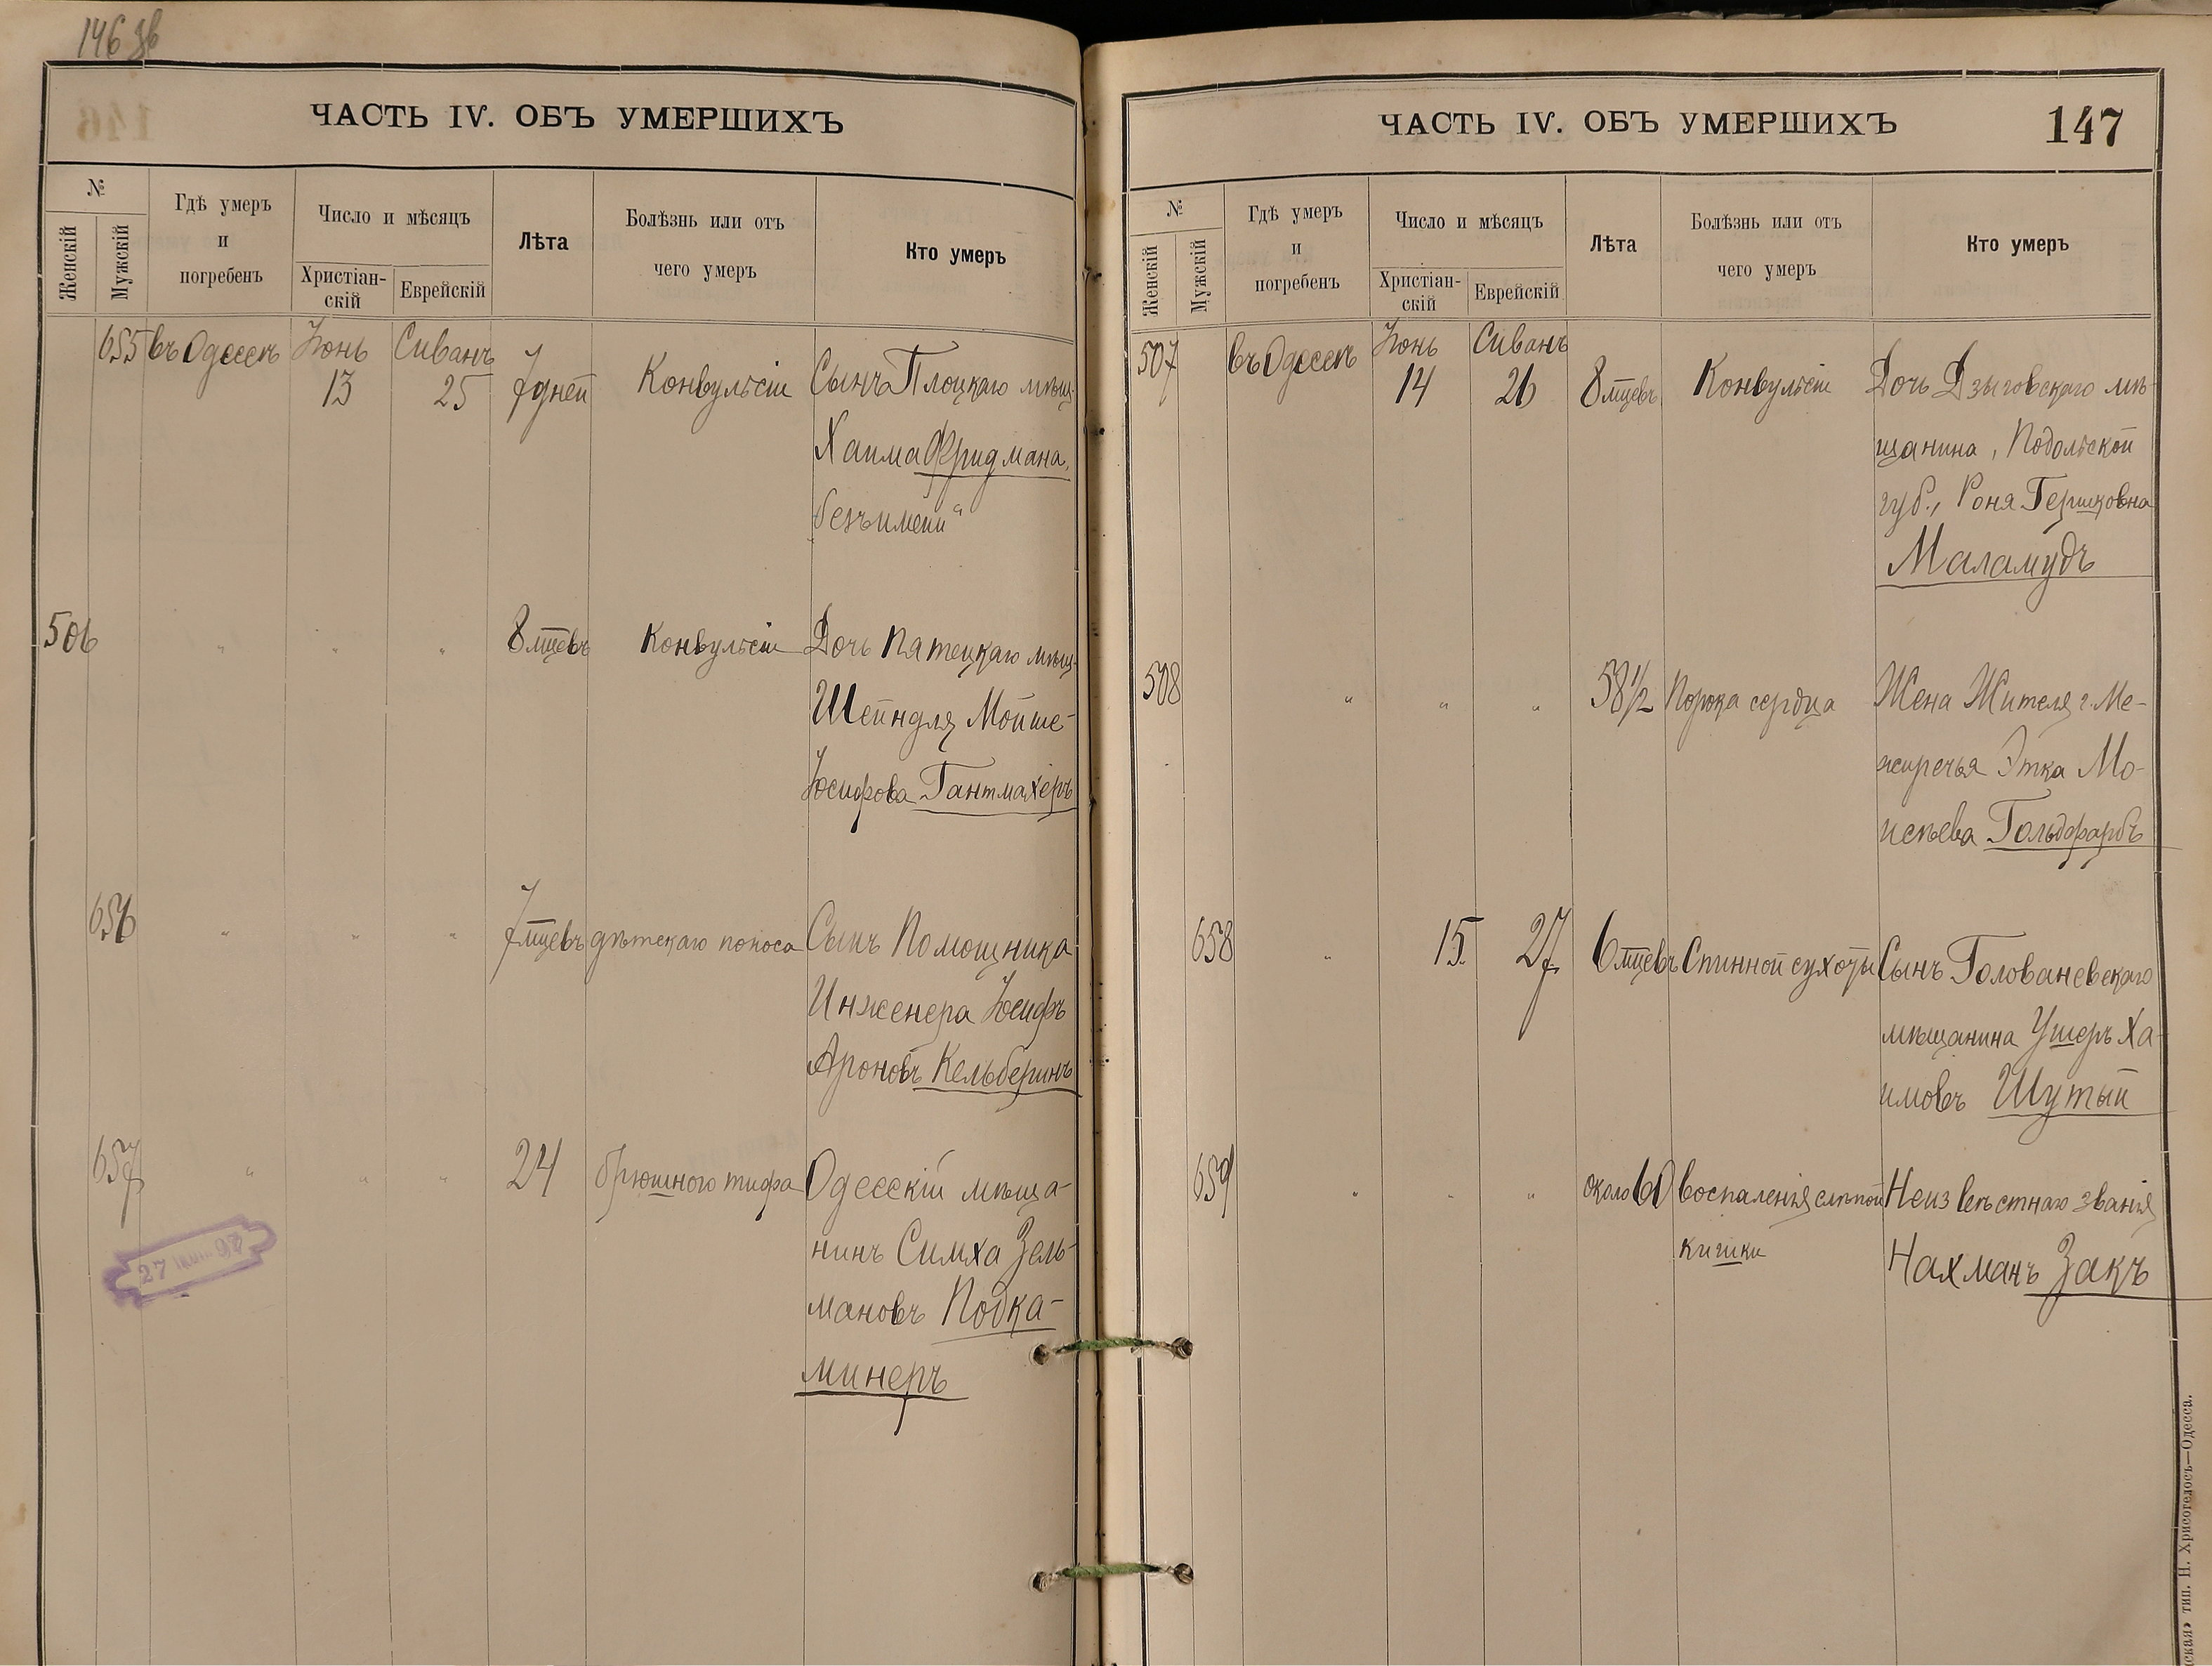 146 зв
ЧАСТЬ IV. ОБЪ УМЕРШИХЪ
№
Женскій
Мужскій
Гдѣ умеръ
и
погребенъ
Число и мѣсяцъ
Христіан-
скій
Еврейскій
Лѣта
Болѣзнь или отъ
чего умеръ
Кто умеръ
655 въ Одессѣ Іюнь 13 Сиванъ 25 7 дней Конвульсіи Сынъ Плоцкаго мѣщ.
Хаима Фридмана,
безъ имени"
506 " " " 8 мцевъ Конвульсіи Дочь Пятецкаго мѣщ.
Шейндля Мойше-
Іосифова Гантмахеръ
656 " " " 7 мцевъ дѣтскаго поноса Сынъ Помощника
Инженера Іосифъ
Ароновъ Кельберинъ
657 " " " 24 брюшного тифа Одесскій мѣща-
нинъ Симха Зель-
мановъ Подка-
минеръ
27 97
ЧАСТЬ IV. ОБЪ УМЕРШИХЪ
147
№
Женскій
Мужскій
Гдѣ умеръ
и
погребенъ
Число и мѣсяцъ
Христіан-
скій
Еврейскій
Лѣта
Болѣзнь или отъ
чего умеръ
Кто умеръ
507 въ Одессѣ Іюнь 14 Сиванъ 26 8 мцевъ Конвульсіи Дочь Дзыговскаго мѣ-
щанина, Подольской
губ., Роня Гершковна
Маламудъ
508 " " " 58 1/2 Порока сердца Жена Жителя г. Ме-
жиречья Этка Мо-
исѣева Гольдфарбъ
658 " 15 27 6 мцевъ Спинной сухоты Сынъ Голованевскаго
мѣщанина Ушеръ Ха-
имовъ Шутый
659 " " " около 60 воспаленія слѣпой Неизвѣстнаго званія
кишки Нахманъ Закъ
тип. Н. Хрисогелосъ—Одесса.